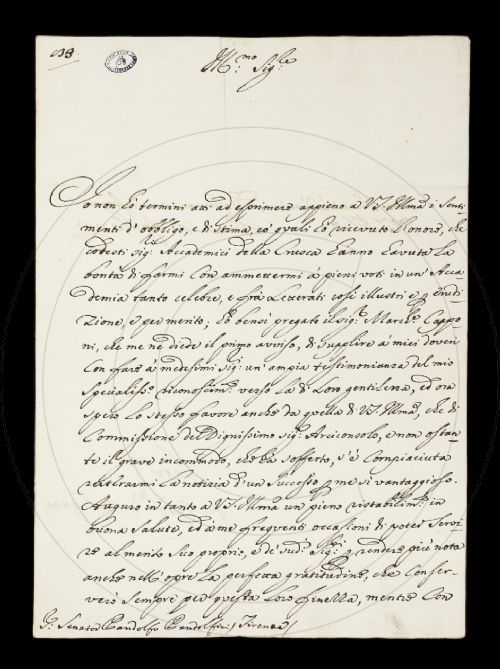 138
Ill:mo Sig:re
Io non hò termini atti ad esprimere appieno a V.S. Illma i senti-
menti d'obbligo, e di stima, co' quali hò ricevuto l'onore, che
codesti Sig:ri Accademici della Crusca hanno havuta la
bontà di farmi con ammettermi à pieni voti in un'Acca-
demia tanto celebre, e frà Letterati così illustri e p erudi-
zione, e per merito; hò bensì pregato il sig:r March:e Cappo-
ni, che me ne diede il primo avviso, di supplire a miei doveri
con fare a' medesimi Sig:ri un'ampia testimonianza del mio
spezialiss:o riconoscim:to verso la di loro gentilezza, ed ora
spero lo stesso favore anche da quella di V.S. Illma, che di
commissione del Dignissimo Sig:r Arciconsolo, e non ostan-
te il grave incommodo, che hà sofferto, s'è compiaciuta
reiterarmi la notizia d'un successo p me sì vantaggioso.
Auguro in tanto a V.S. Illma un pieno ristabilim:to in
buona salute, ed a me frequenti occasioni di poter servi-
re al merito suo proprio, e de' sud:i Sig:ri p rendere più nota
anche nell'opre la perfetta gratitudine, che conser-
verò sempre per questa loro finezza, mentre con
S:r Senator Pandolfo Pandolfini / Firenze /